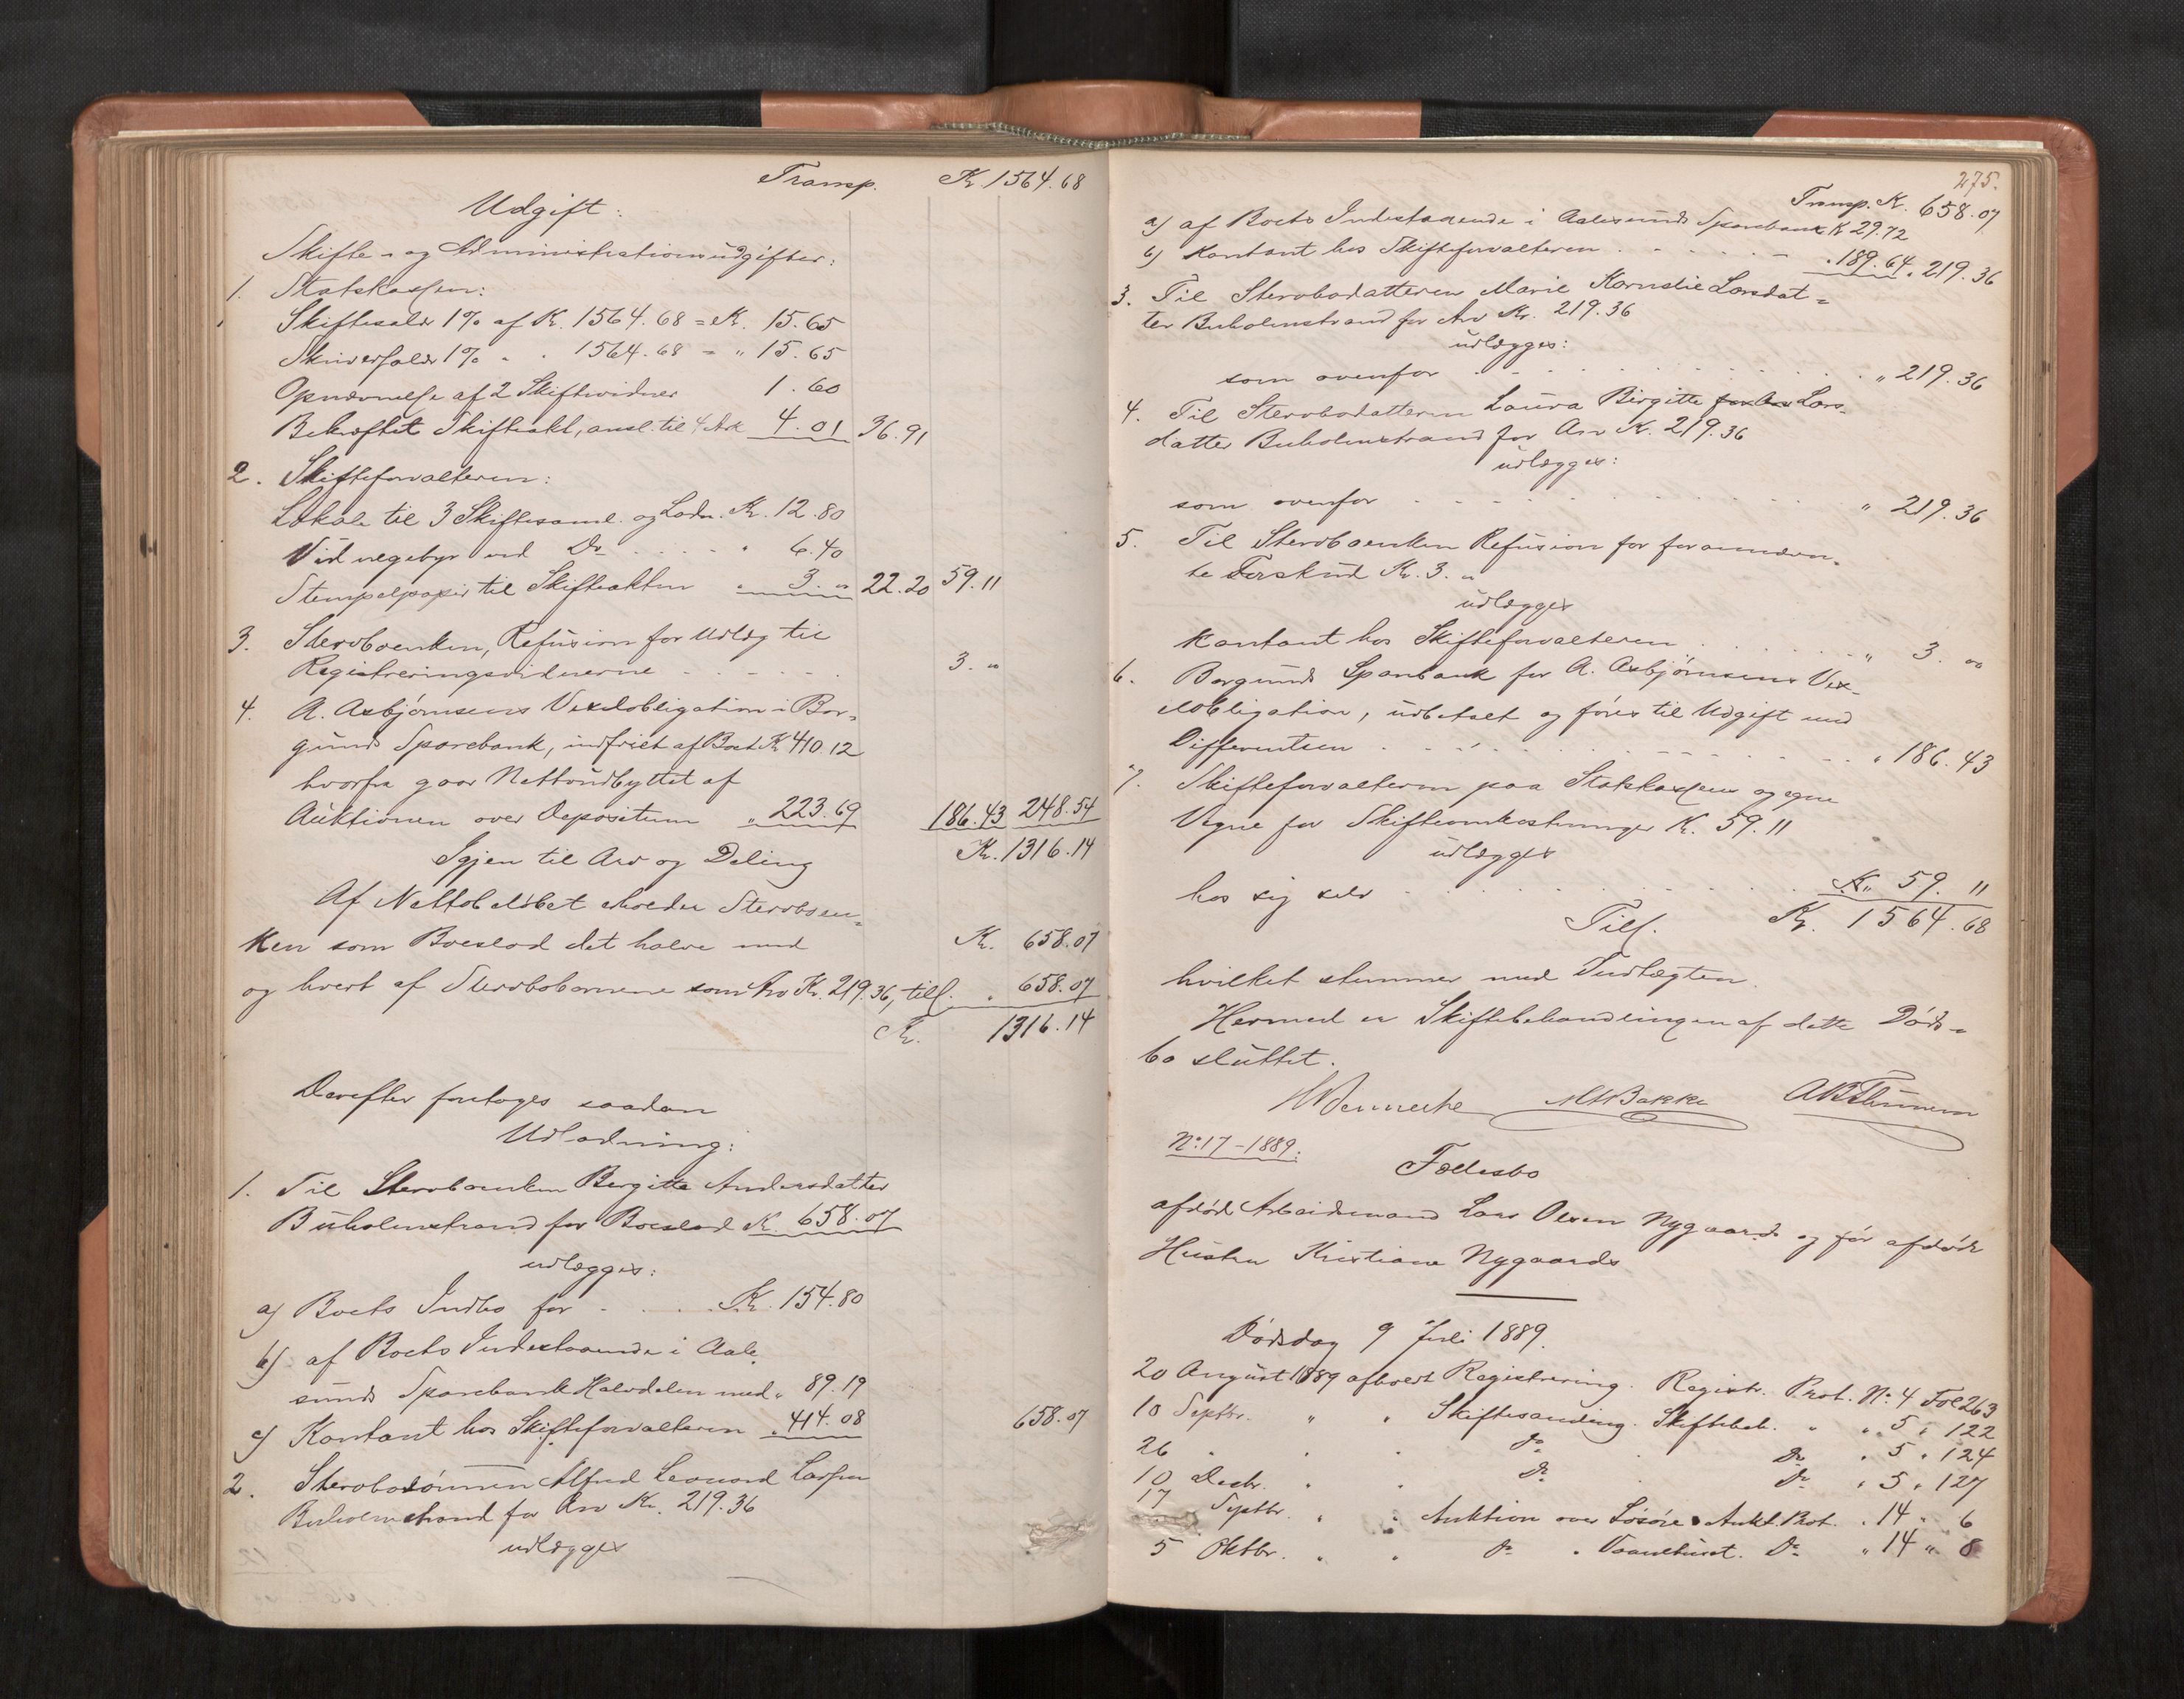 Transp. Kr. 1564.68
Udgift:
Skifte- og Administrationsudgifter:
1. Statskassen:
Skiftesalær 1% af Kr. 1564.68 = Kr. 15.65
Skriversalær 1% " " 1564.68 = " 15.65
Opnævnelse af 2 Skiftevidner 1.60
Bekræftet Skifteakt, ansl. til 4 Ark 4.01 36.91
2. Skifteforvalteren:
Lokale til 3 Skiftesaml. og Lodn. Kr. 12.80
Vidnegebyr ved Do . . . . " 6.40
Stempelpapir til Skifteakten " 3. " 22.20 59.11
3. Sterboenken, Refusion for Udlæg til
Registreringsvidnerne - - - - - . 3. "
4. A. Asbjørnsens Vexelobligation i Bor-
gunds Sparebank, indfriet af Boet Kr 410.12
hvorfra gaar Nettoudbyttet af
Auktionen over Depositum " 223.69 186.43 248.54
Igjen til Arv og Deling Kr. 1316.14
Af Nettobeløbet tilkommer Sterboen-
ken som Boeslod det halve med Kr. 658.07
og hvert af Sterbobørnene som Arv Kr. 219.36, tils. " 658.07
Kr. 1316.14
Derefter foretoges saadan
Udlodning:
1. Til Sterboenken Bergitte Andersdatter
Buholmstrand for Boeslod Kr. 658.07
udlægges:
a) Boets Indbo for - . . . Kr. 154.80
b) af Boets Indestaaende i Aale-
sunds Sparebank Halvdelen med " 89.19
c) Kontant hos Skifteforvalteren " 414.08 658.07
2. Sterbosønnen Alfred Leonard Larsen
Buholmstrand for Arv Kr. 219.36
udlægges
275.
Transp. Kr. 658.07
a) af Boets Indestaaende i Aalesunds Sparebank Kr 29.72
b) Kontant hos Skifteforvalteren . - - - - - " 189.64 " 219.36
3. Til Sterbodatteren Marie Kornelie Larsdat-
ter Buholmstrand for Arv Kr. 219.36
udlægges:
som ovenfor . . . . . . . . " 219.36
4. Til Sterbodatteren Laura Birgitte for Arv Lars-
datter Buholmstrand for Arv Kr. 219.36
udlægges:
som ovenfor - - - - - - - " 219.36
5. Til Sterboenken Refusion for forannævn-
te Forskud Kr. 3. "
udlægges
Kontant hos Skifteforvalteren . . . . . " 3. "
6. Borgunds Sparebank for A. Asbjørnsens Vex-
elobligation, udbetalt og føres til Udgift med
Differentsen . . . . . . . . . " 186.43
7. Skifteforvalteren paa Statskassens og egne
Vegne for Skifteomkostninger Kr. 59.11
udlægges
hos sig selv . . . . . . . Kr. 59.11
Tils. Kr. 1564.68
hvilket stemmer med Indtægten.
Hermed er Skiftebehandlingen af dette Døds-
bo sluttet.
MBakke
No. 17-1889.
Fællesbo
afdøde Arbeidsmand Lars Olsen Nygaards og før afdøde
Hustru Kristiane Nygaards
Dødsdag 9 Juli 1889.
20 August 1889 afholdt Registrering. Registr. Prot. No. 4 Fol 263
10 Septbr. " " Skiftesamling. Skiftebeh. " " 5 " 122
26 " " " Do " Do " 5 " 124
10 Decbr. " " Do Do " 5 " 127
17 Septbr. " " Auktion over Løsøre. Aukt. Prot. " 14 " 6
5 Oktbr. " " Do " Vaaningshuset. Do " 14 " 8